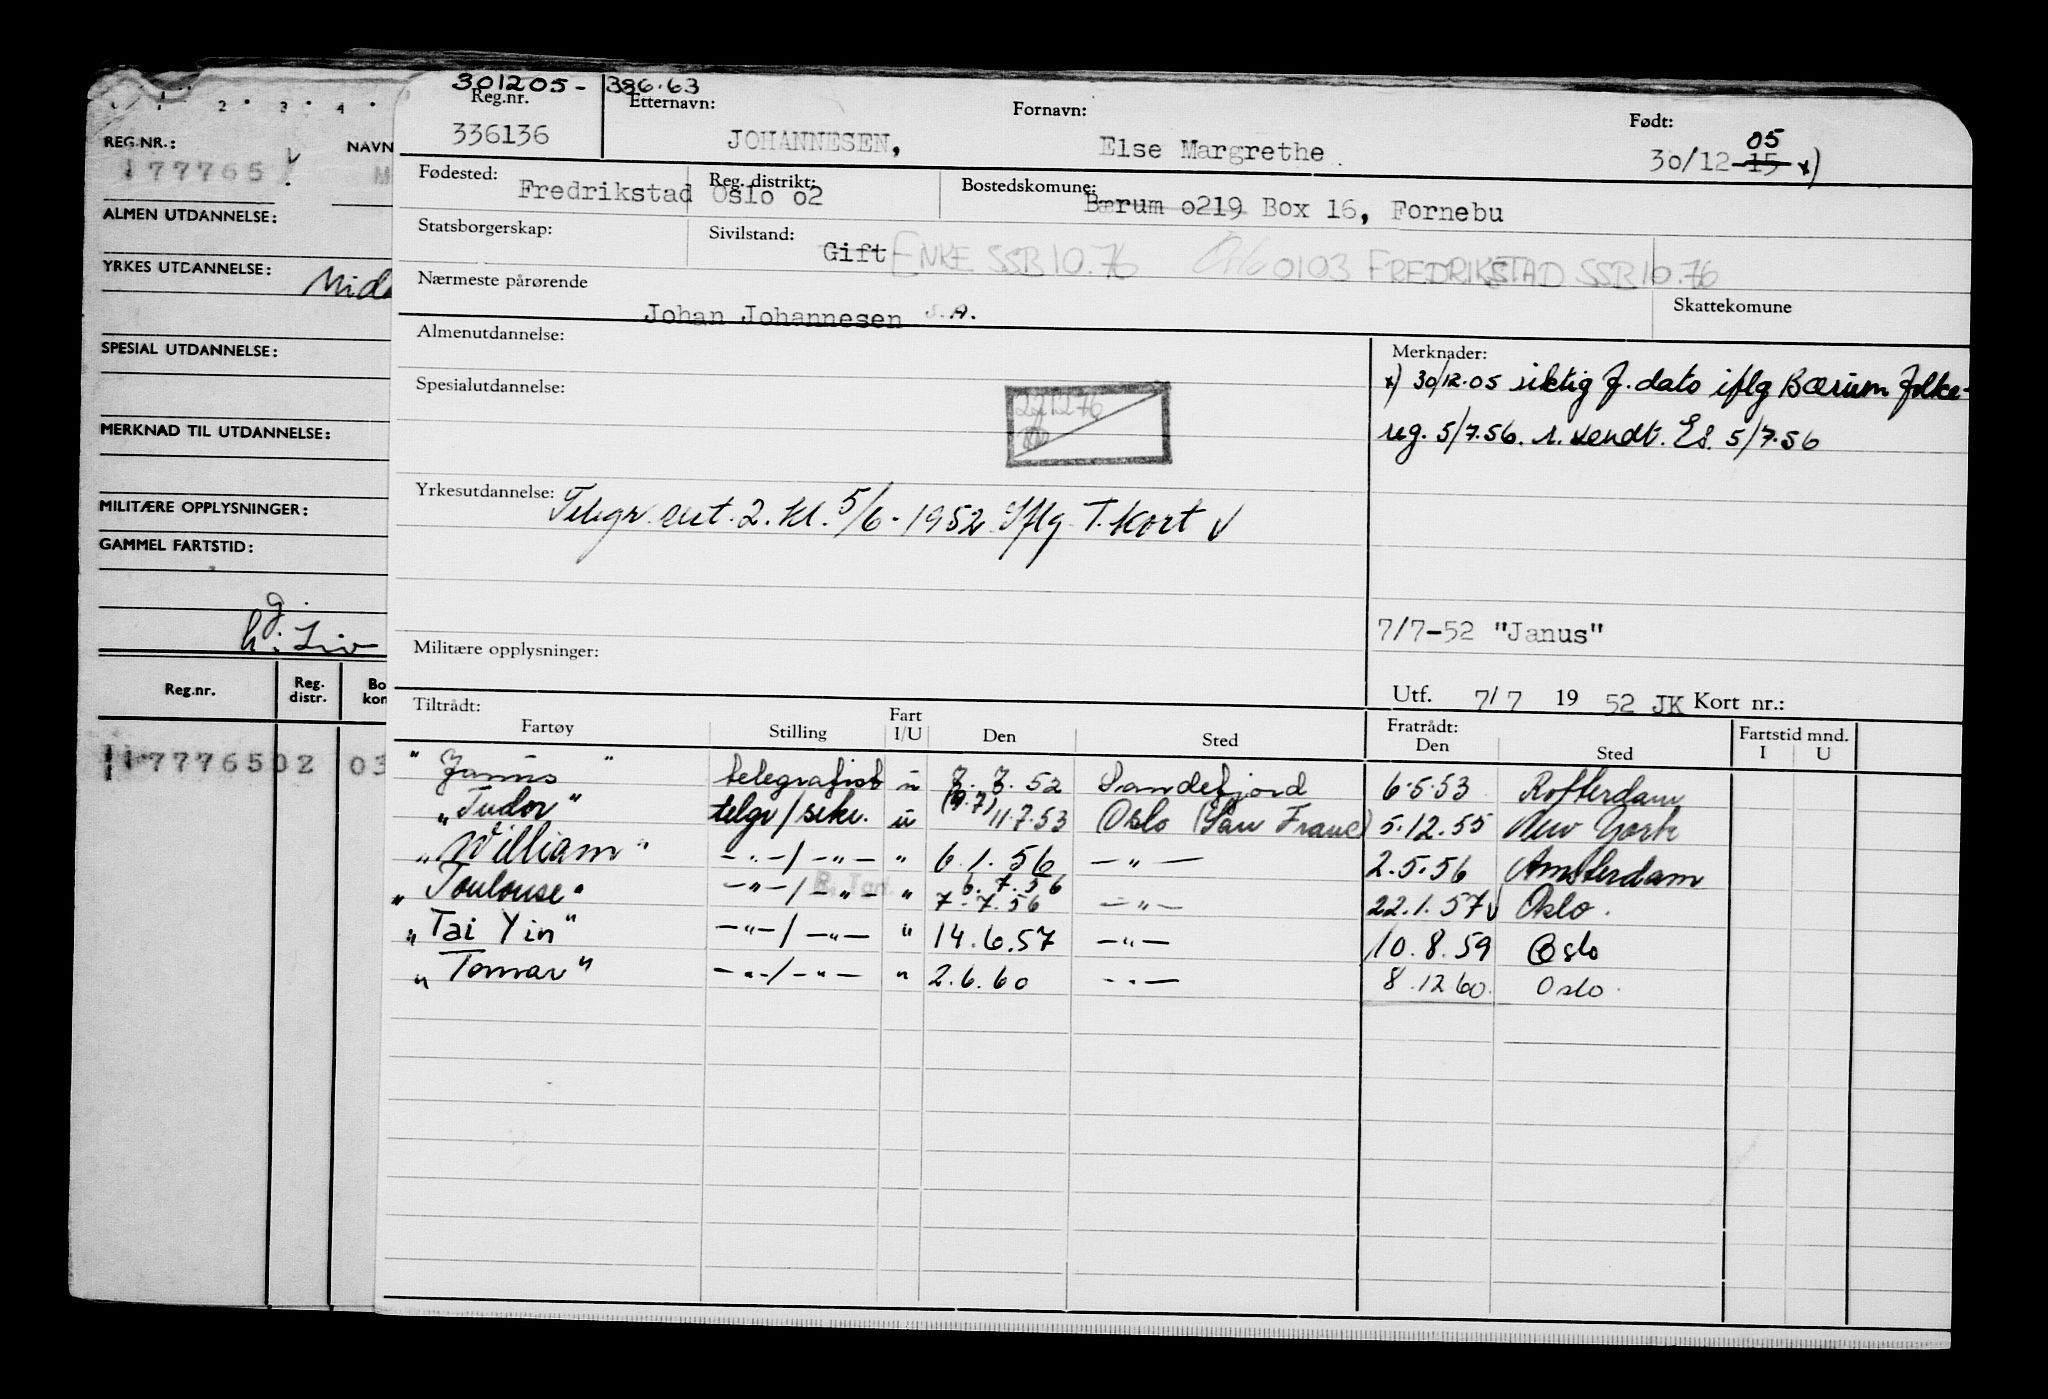 301205- 386.63
Reg.nr. Etternavn: Fornavn: Født:
336136 JOHANNESEN, Else Margrethe 30/12-15 05 x)
Fødested: Reg. distrikt: Bostedskomune:
Fredrikstad Oslo 02 Bærum 0219 Box 16, Fornebu
Statsborgerskap: Sivilstand:
Gift ENKE SSB 10.76 0103 FREDRIKSTAD SSB 10.76
Nærmeste pårørende Skattekomune
Johan Johannesen S.A.
Almenutdannelse: Merknader:
x) 30/12.05 riktig f. dato iflg Bærum folke-
reg. 5/7.56. r. sendt. Es. 5/7.56
Spesialutdannelse:
271276
Yrkesutdannelse: Telegr. sert. 2. kl. 5/6-1952 Iflg T. Kort √
7/7-52 "Janus"
Militære opplysninger:
Utf. 7/7 19 52 JK Kort nr.:
Tiltrådt: Fratrådt: Fartstid mnd.
Fartøy Stilling Fart I/U Den Sted Den Sted I U
"Janus" telegrafist u 7.7.52 Sandefjord 6.5.53 Rotterdam
"Tudor" telgr/sekr. u (9.7) 11.7.53 Oslo (San Franc) 5.12.55 New York
"William" -"-/-"- " 6.1.56 -"- 2.5.56 Amsterdam
"Toulouse" -"-/-"- " 6.7.56 7.7.56 -"- 22.1.57 √ Oslo.
"Tai Yin" -"-/-"- " 14.6.57 -"- 10.8.59 Oslo
"Tomar" -"-/-"- " 2.6.60 -"- 8.12 60. Oslo.
1 2 3 4
REG.NR.: NAVN
177765 √ M
ALMEN UTDANNELSE:
YRKES UTDANNELSE: Mid
SPESIAL UTDANNELSE:
MERKNAD TIL UTDANNELSE:
MILITÆRE OPPLYSNINGER:
GAMMEL FARTSTID:
g.
h. Liv
Reg.nr. Reg. distr. Bo kon
177765 02 03